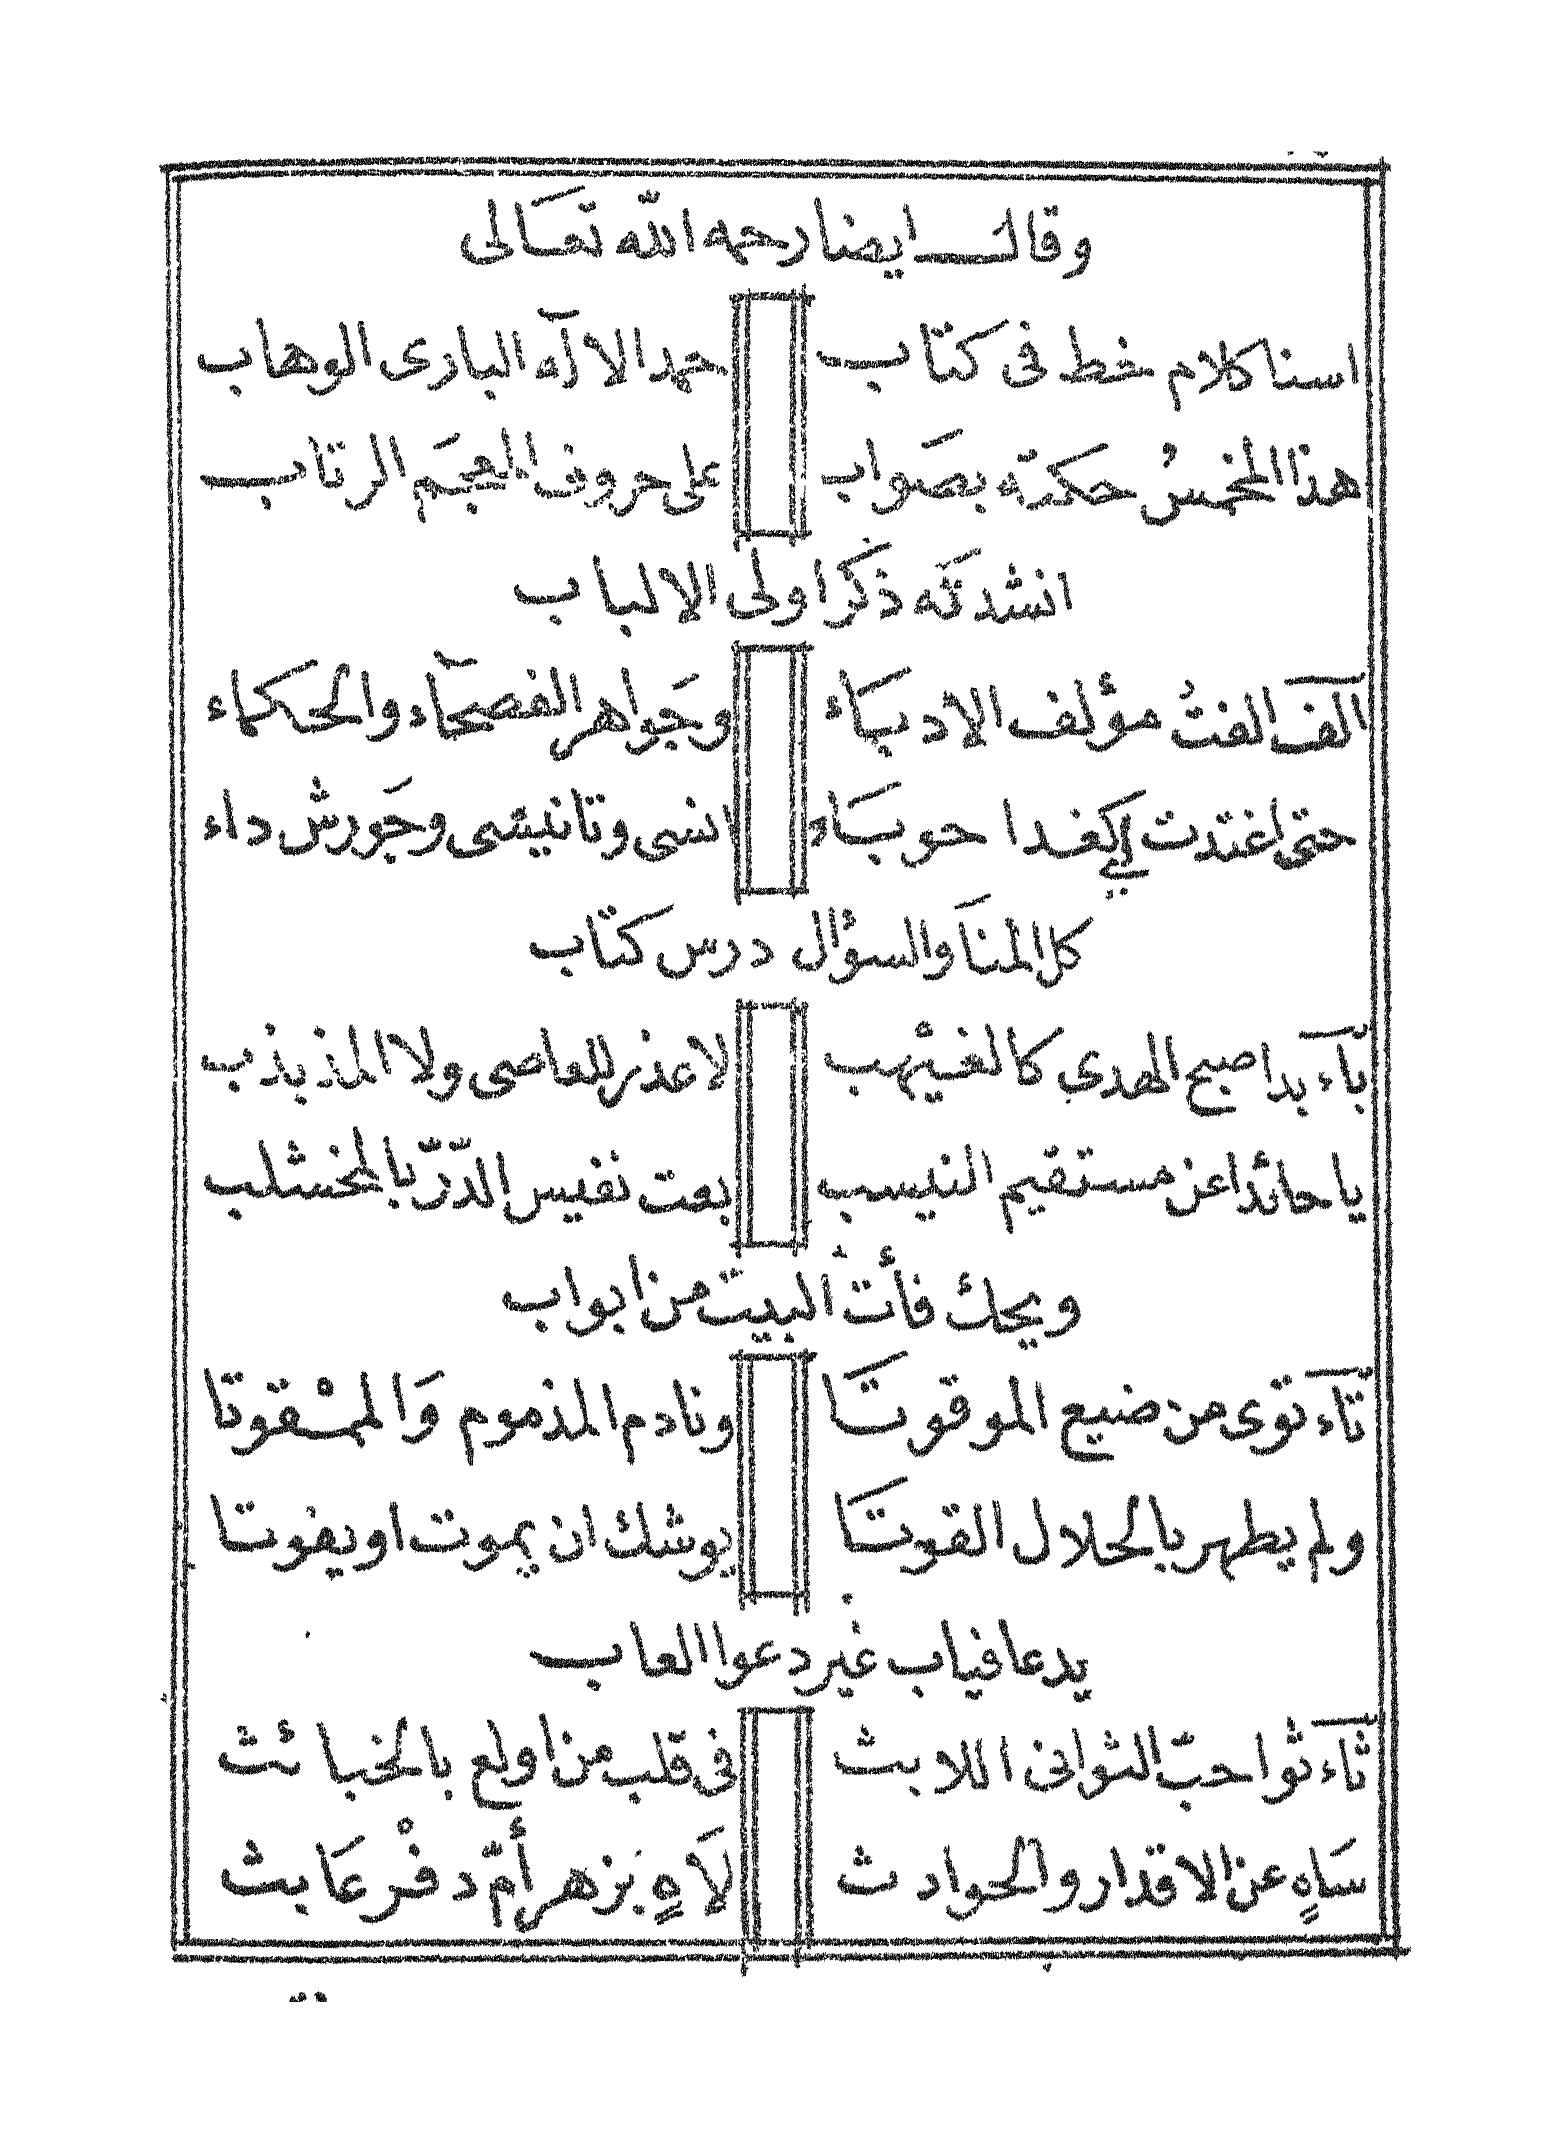 وقال ايضا رحمه الله تعالى
اسنا كلام خط فى كتاب حمد الالٓه البارى الوهاب
هذا المخمسُ حكمته بصواب على حروف المعجَم الرتاب
انشدتَه ذكَرا ولى الالباب
الَف الفتُ مؤلف الادبَاء وجَواهر الفصحآء والحكماء
حتى اغتدت كفدا حوبَاء انسى وتانيسى وجَورش داء
كل المنَا والسؤال درس كتاب
بآء بدا صبح الهدى كالغيْهب لا عذر للعاصى ولا المذبذب
يا حائدا عن مستقيم النيسب بعت نفيس الدّرّ بالمخشلب
ويحك فأت البيت من ابواب
تآء توى من ضيع الموقوتَا ونادم المذموم وَالممْقوتا
ولم يطهر بالحلال القوتَا يوشك ان يموت او يفوتا
يدعا فياب غير دعوا العاب
ثآء ثوا حبّ الثوانى اللابث فى قلب من اولع بالخبائث
سَاهٍ عن الاقدار والحوادث لَاهٍ بزهر أمّ دفْر عَابث